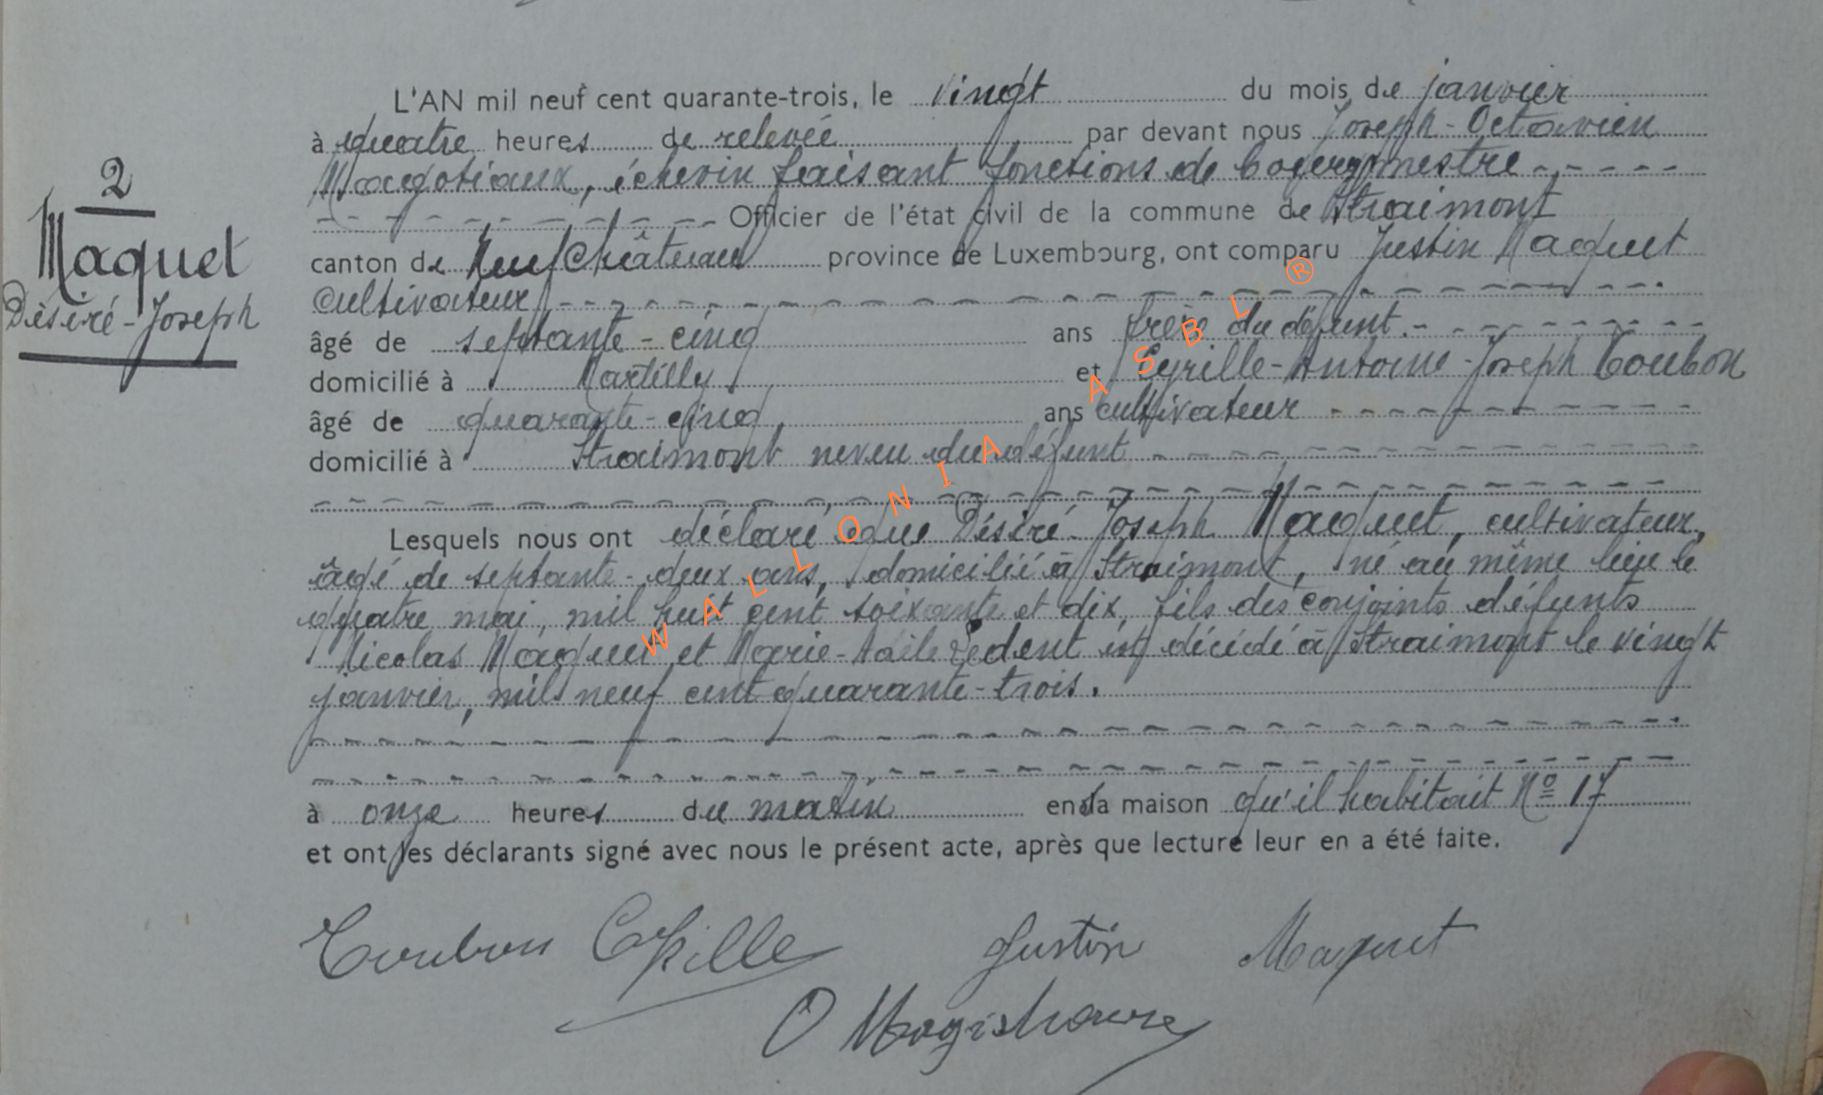 L'AN mil neuf cent quarante-trois, le vingt du mois de janvier
à quatre heures de relevée par devant nous Joseph-Octavien
échevin faisant fonctions de bourgmestre
Officier de l'état civil de la commune de Straimont
canton de Neufchâteau province de Luxembourg, ont comparu Justin Maquet
cultivateur
âgé de septante-cinq ans frère du défunt.
domicilié à Martilly et Cyrille-Antoine-Joseph Toubon
âgé de quarante-cinq ans cultivateur
domicilié à Straimont neveu du défunt
2
Maquet
Désiré-Joseph
Lesquels nous ont déclaré que Désiré-Joseph Maquet, cultivateur,
âgé de septante-deux ans, domicilié à Straimont, né au même lieu le
quatre mai, mil huit cent soixante et dix, fils des conjoints défunts
Nicolas Maquet et Marie- Dédent est décédé à Straimont le vingt
janvier, mil neuf cent quarante-trois.
à onze heures du matin en sa maison qu'il habitait Nº 17
et ont les déclarants signé avec nous le présent acte, après que lecture leur en a été faite.
Toubon Cyrille Justin Maquet
O
WALLONIA ASBL ®